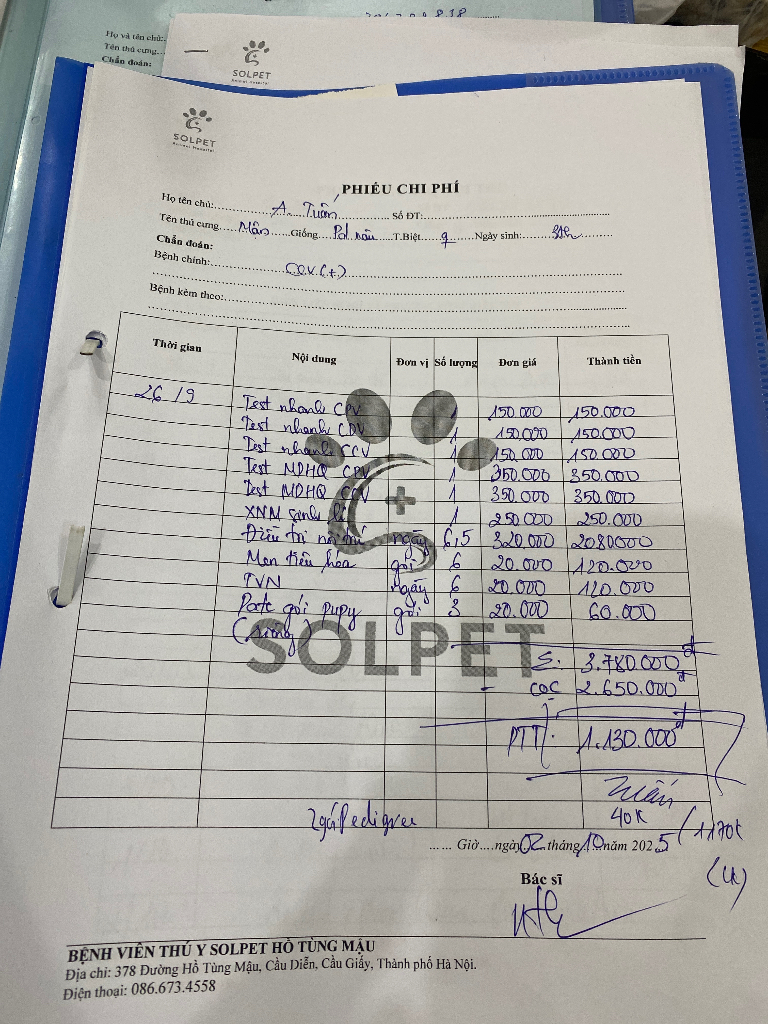 Họ và tên chủ:
Tên thú cưng
Chẩn đoán:
SOLPET
Animal Hospital
SOLPET
Animal Hospital
PHIẾU CHI PHÍ
Họ tên chủ: A. Tuấn Số ĐT:
Tên thú cưng Mận Giống Pd nâu T.Biệt Ngày sinh: 3th
Chẩn đoán:
Bệnh chính: CCV (+)
Bệnh kèm theo:
Thời gian Nội dung Đơn vị Số lượng Đơn giá Thành tiền
26/9 Test nhanh CPV 1 150.000 150.000
Test nhanh CDV 1 150.000 150.000
Test nhanh CCV 1 150.000 150.000
Test MDHQ CPV 1 350.000 350.000
Test MDHQ CDV 1 350.000 350.000
XNM sinh lí 1 250.000 250.000
Điều trị nội trú ngày 6,5 320.000 2080000
Men tiêu hóa gói 6 20.000 120.000
TVN ngày 6 20.000 120.000
Pate gói pupy gói 3 20.000 60.000
(riêng)
SOLPET
S. 3.780.000đ
- CỌC 2.650.000đ
PTT: 1.130.000đ
Tuấn
2gói Pedigree 40K
(1170k
(ck)
Giờ ngày 02 tháng 10 năm 2025
Bác sĩ
BỆNH VIÊN THÚ Y SOLPET HỒ TÙNG MẬU
Địa chỉ: 378 Đường Hồ Tùng Mậu, Cầu Diễn, Cầu Giấy, Thành phố Hà Nội.
Điện thoại: 086.673.4558